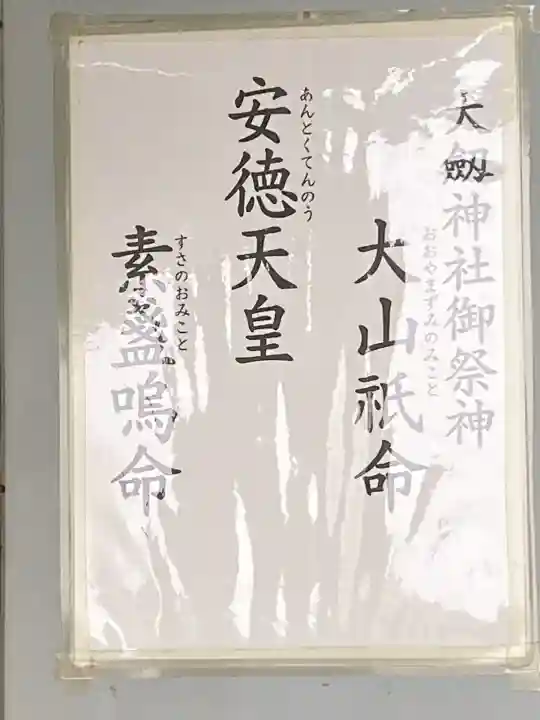 天劔神社御祭神
おおやまずみのみこと
大山祇命
あんとくてんのう
安徳天皇
すさのおみこと
素盞嗚命